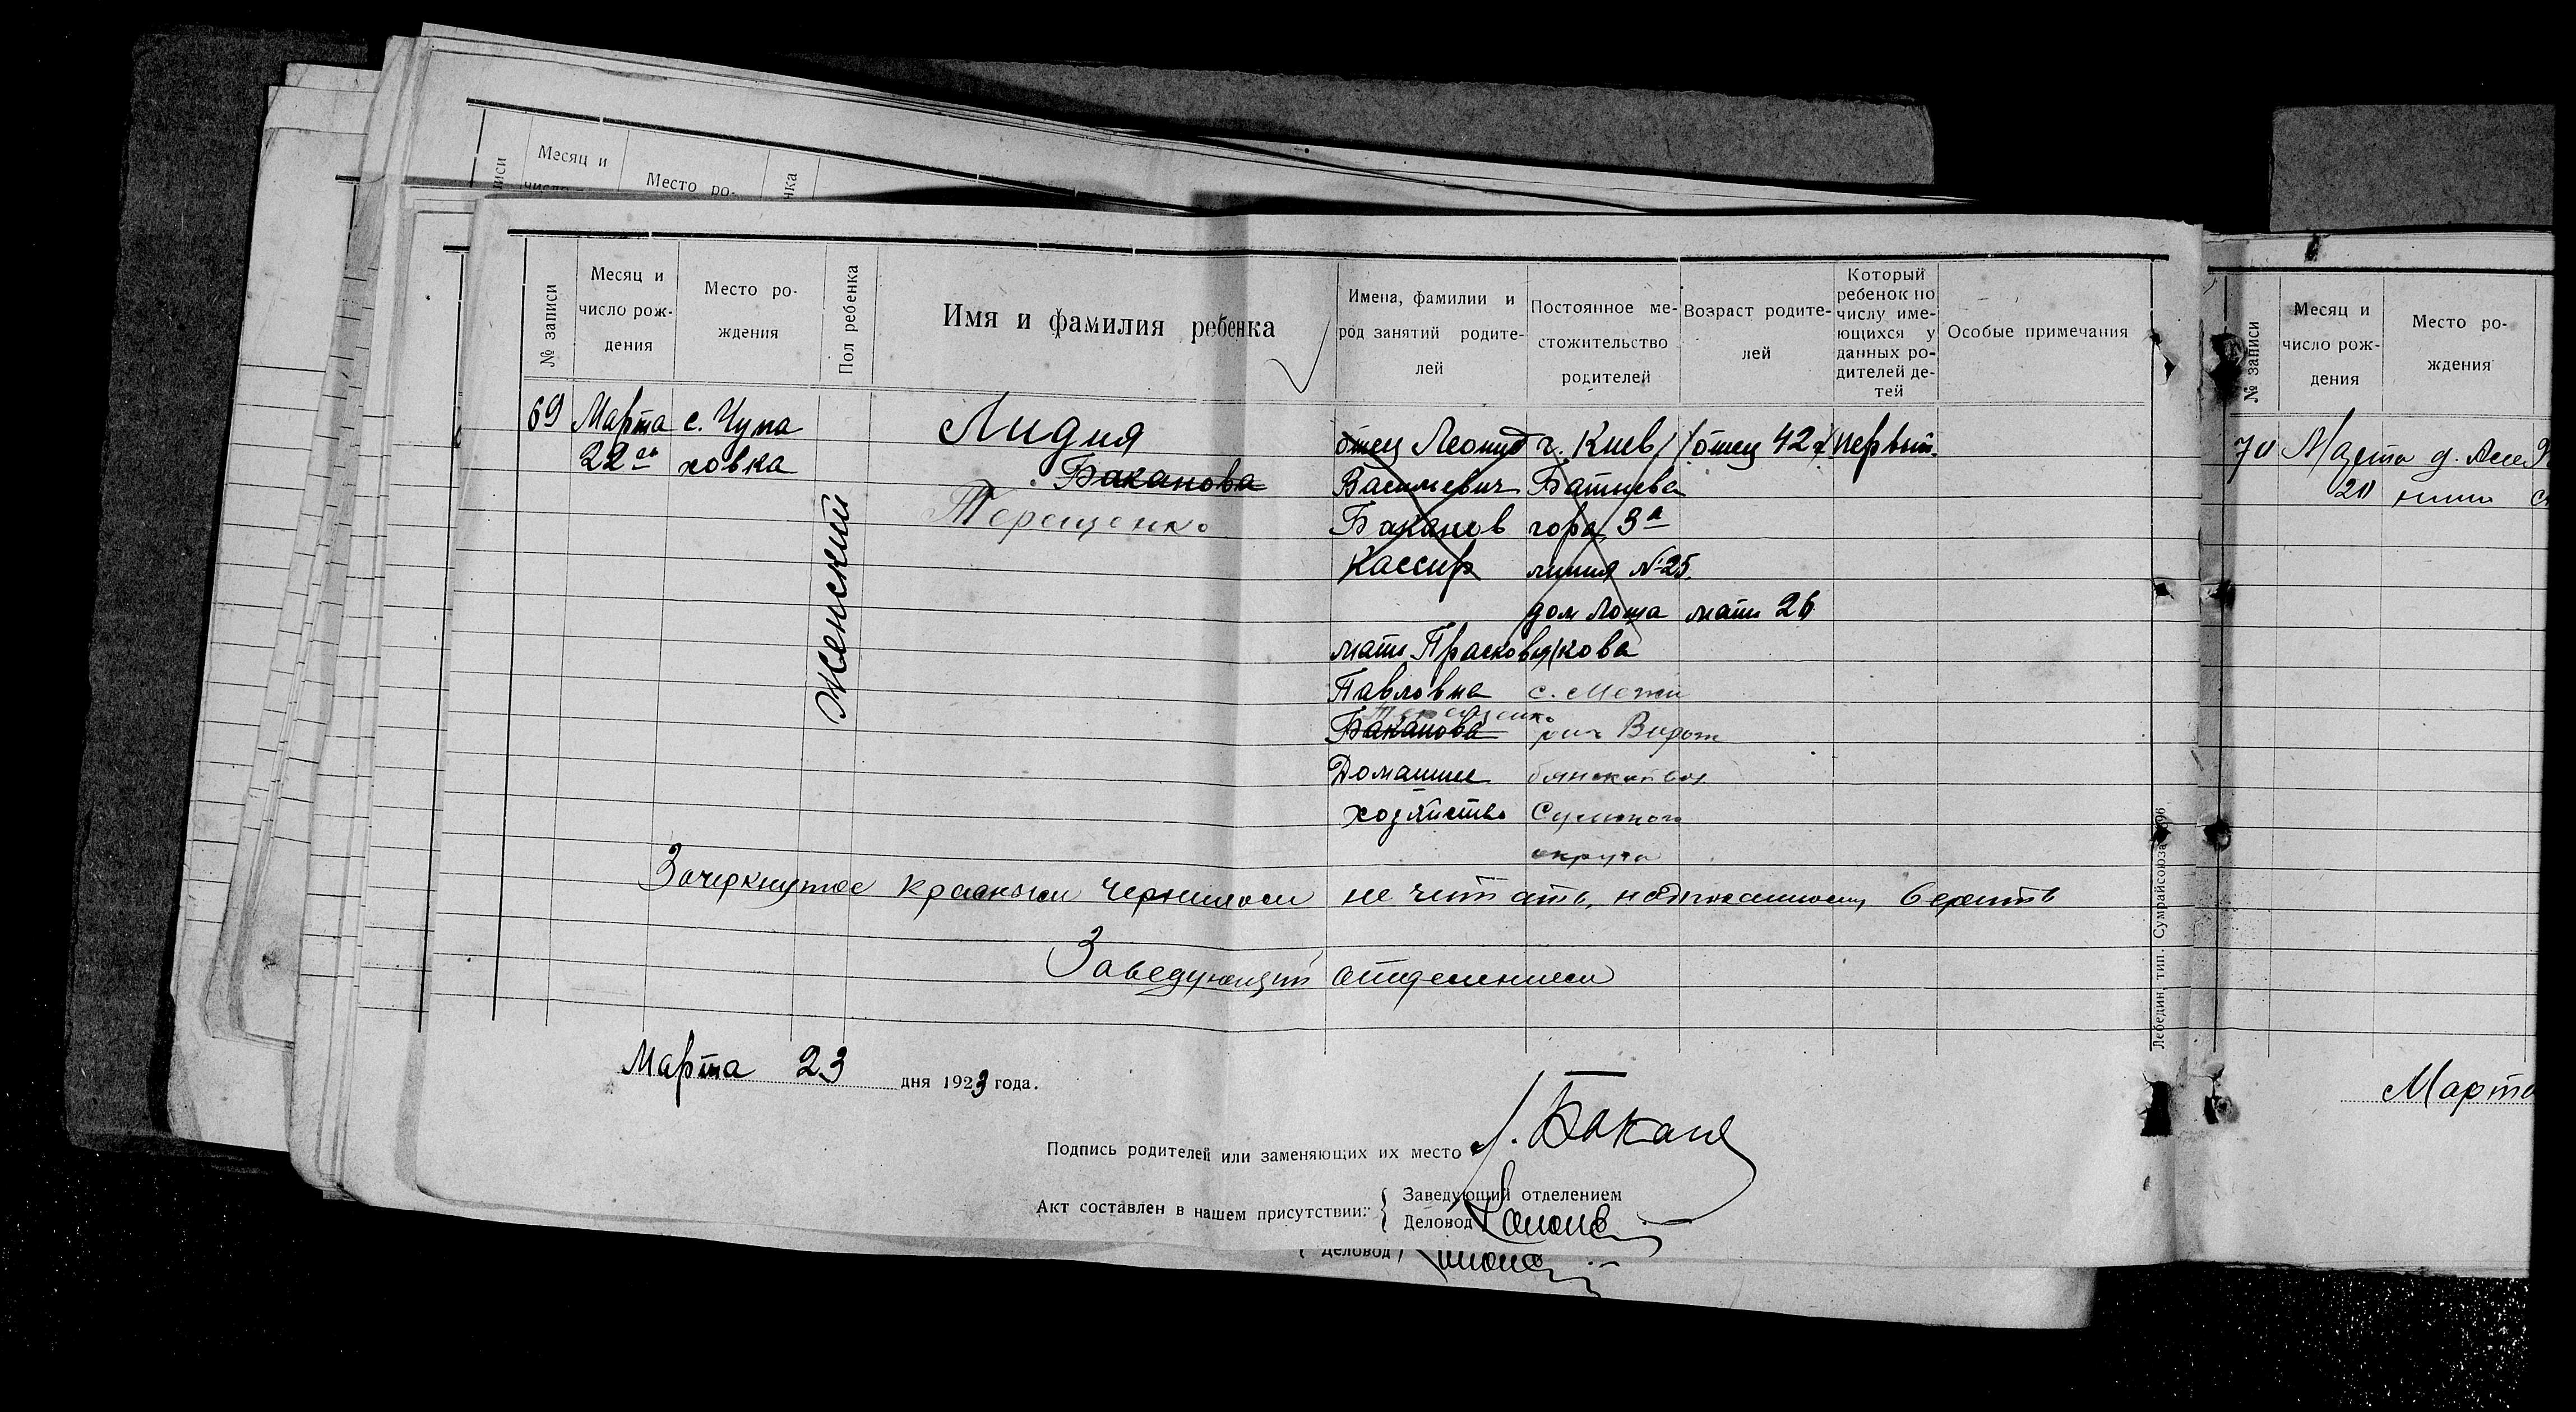 Месяц и
Место ро-
№ записи
Месяц и число рож-дения
Место ро-ждения
Пол ребенка
Имя и фамилия ребенка
Имена, фамилии и род занятий родите-лей
Постоянное ме-стожительство родителей
Возраст родите-лей
Который ребенок по числу име-ющихся у данных ро-дителей де-тей
Особые примечания
69
Марта 22го
с. Чупа
ховка
Женский
Лидия
Баканова
Терещенко
отец Леонид
Васильевич
Баканов
Кассир
мать Прасковья
Павловна
Терещенко
Баканова
Домашнее
хозяйство
г. Киев
Батыева
гора 3я
линия №25.
дом Лоша
кова
с.
Сумского
округа
отец 42
мать 26
первый.
Зачеркнутое красными чернилами не читать, надписанному верить
Заведующий отделением
Марта 23 дня 1923 года.
Подпись родителей или заменяющих их место Л. Бакано
Акт составлен в нашем присутствии: Заведующий отделением
Деловод
Деловод
Лебедин, тип. Сумрайсоюза
№ записи
Месяц и число рож-дения
Место ро-ждения
70
Марта
20
д.
Марта